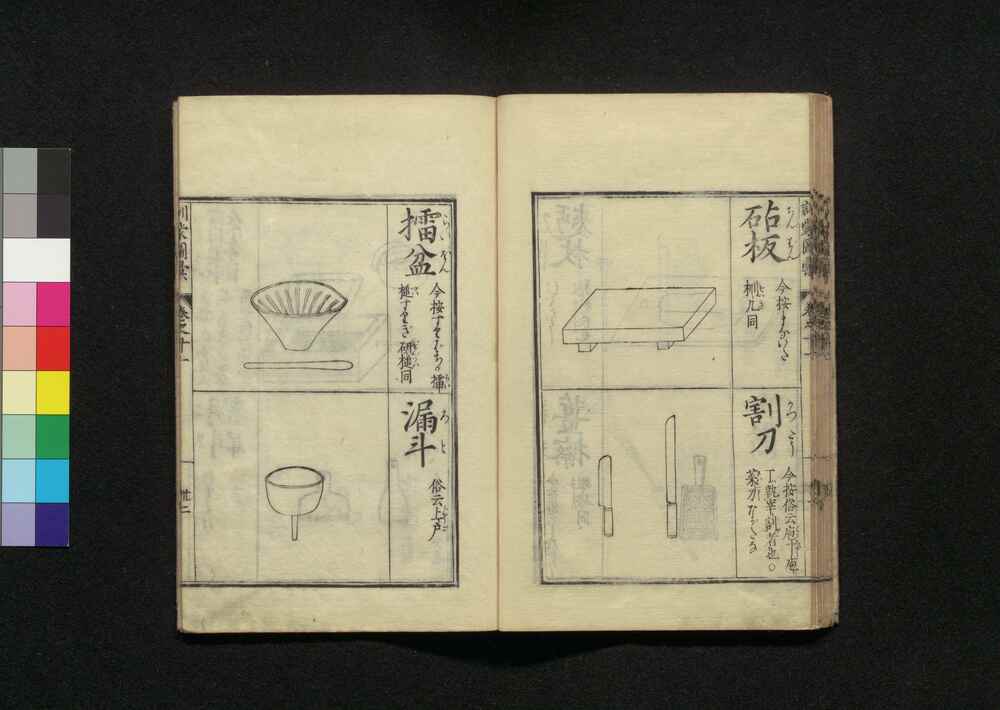 砧板
ちんばん
今按まないた
机几同
割刀
かつたう
今按俗云庖丁庖
丁執宰訓者也○
菜刀ながたな
擂盆
らいぼん
今按すりばち
槌すりこぎ 研槌同
漏斗
ろと
俗云上戸
じやうご
訓蒙圖彙
卷之十一
廿二